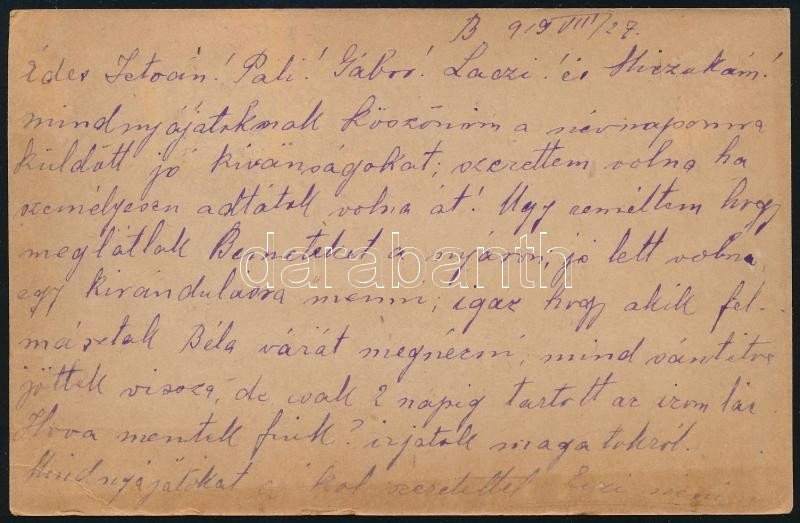 B 919 VIII/27.
Édes István! Pali! Gábor! Laczi! és Miczukám!
mindnyájatoknak köszönöm a névnapomra
küldött jó kívánságokat; szerettem volna ha
személyesen adtátok volna át! Ugy reméltem hogy
meglátlak Benneteket a nyáron, jó lett volna
egy kirándulásra menni; igaz hogy akik fel-
másztak Béla várát megnézni, mind sántítva
jöttek vissza, de csak 2 napig tartott az izom láz
Hova mentek fiuk? irjatok magatokról.
Mindnyájátokat csókol szeretettel néni
darabanth